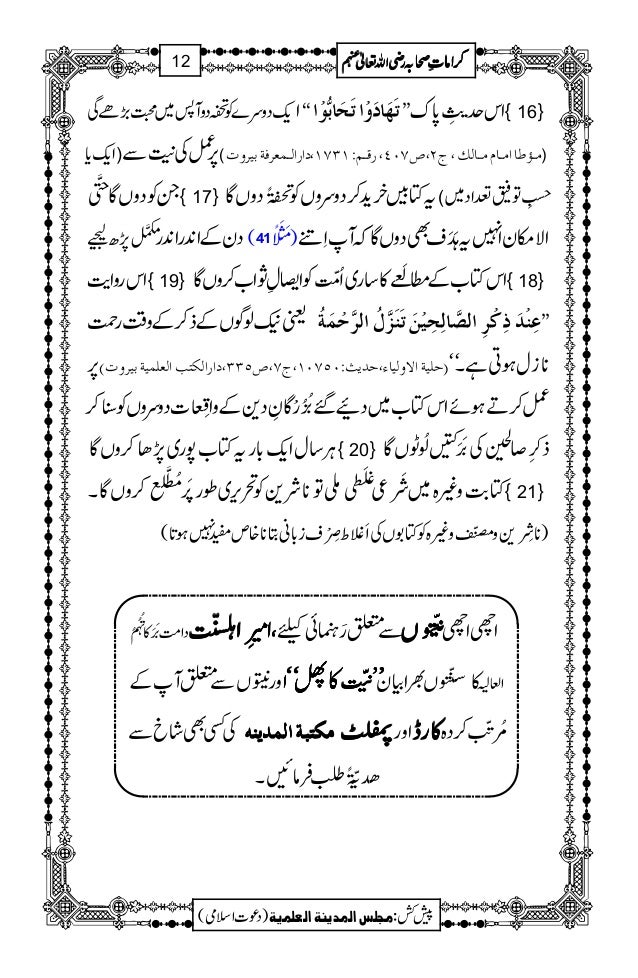 کراماتِ صحابہ رضی اللہ تعالیٰ عنہم
12
{16} اس حدیثِ پاک ’’ تَھَادَوْا تَحَابُّوْا ‘‘ ایک دوسرے کو تحفہ دو آپس میں محبت بڑھے گی
(مؤطا امام مالک ، ج۲،ص۴۰۷، رقم: ۱۷۳۱،دارالمعرفة بیروت) پر عمل کی نیت سے (ایک یا
حسبِ توفیق تعداد میں) یہ کتابیں خرید کر دوسروں کو تحفۃً دوں گا {17} جن کو دوں گا حتَّی
الامکان انہیں یہ ہَدَف بھی دوں گا کہ آپ اِتنے (مَثَلاً 41) دن کے اندر اندر مکمَّل پڑھ لیجیے
{18} اس کتاب کے مطالَعے کا ساری اُمّت کو ایصالِ ثواب کروں گا {19} اس روایت
’’عِنْدَ ذِکْرِ الصَّالِحِیْنَ تَنَزَّلُ الرَّحْمَةُ یعنی نیک لوگوں کے ذکر کے وقت رحمت
نازل ہوتی ہے۔‘‘ (حلیة الاولیاء،حدیث: ۱۰۷۵۰،ج۷،ص۳۳۵،دارالکتب العلمیة بیروت) پر
عمل کرتے ہوئے اس کتاب میں دیئے گئے بُزُرْگانِ دین کے واقِعات دوسروں کو سنا کر
ذکرِ صالحین کی بَرَکتیں لُوٹوں گا {20} ہر سال ایک بار یہ کتاب پوری پڑھا کروں گا
{21} کتابت وغیرہ میں شَرعی غَلَطی ملی تو ناشرین کو تحریری طور پر مُطَّلع کروں گا۔
(ناشِرین و مصنّف وغیرہ کو کتابوں کی اَغلاط صِرْف زبانی بتانا خاص مفید نہیں ہوتا)
اچھی اچھی نیّتوں سے متعلق رَہنمائی کیلئے، امیرِ اہلسنّت دامت بَرَکاتُہُمُ
العالیہ کا سنّتوں بھرا بیان ’’نیّت کا پھل‘‘ اور نیتوں سے متعلق آپ کے
مُرتّب کردہ کارڈ اور پمفلٹ مکتبة المدینه کی کسی بھی شاخ سے
ھدیّۃً طلب فرمائیں۔
پیش کش: مجلس المدینة العلمیة (دعوتِ اسلامی)